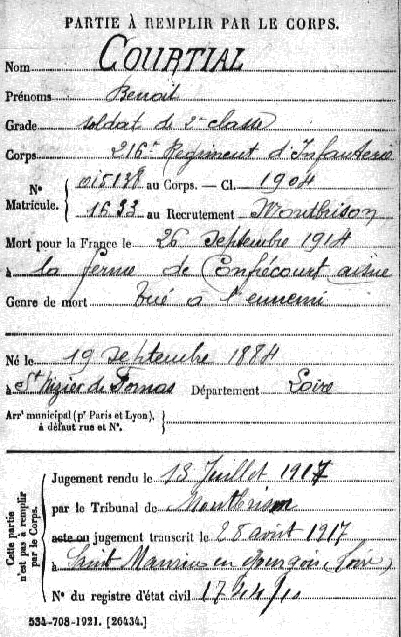 PARTIE À REMPLIR PAR LE CORPS.
Nom COURTIAL
Prénoms Benoit
Grade soldat de 2e classe
Corps 216e Régiment d'Infanterie
N° Matricule. { 015138 au Corps. — Cl. 1904
1633 au Recrutement Montbrison
Mort pour la France le 26 septembre 1914
à la ferme de Confrécourt aisne
Genre de mort tué à l'ennemi
Né le 19 septembre 1884
à St Nizier de Fornas Département Loire
Arrt municipal (pr Paris et Lyon), à défaut rue et N°. }
Cette partie n'est pas à remplir par le Corps.
Jugement rendu le 13 Juillet 1917
par le Tribunal de Montbrison
acte ou jugement transcrit le 28 août 1917
à Saint Maurice en Gourgois (Loire)
N° du registre d'état civil
534-708-1921. [26434.]